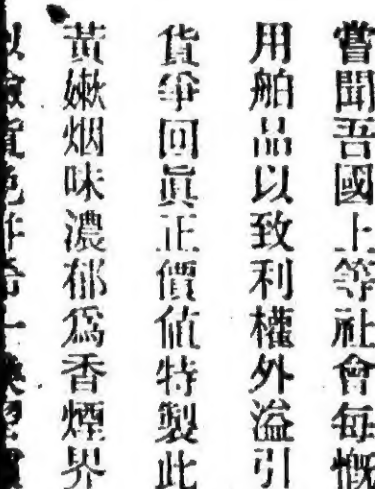 嘗聞吾國上等社會每慨
用舶品以致利權外溢引
貨爭回眞正價值特製此
黃嫩烟味濃郁爲香煙界